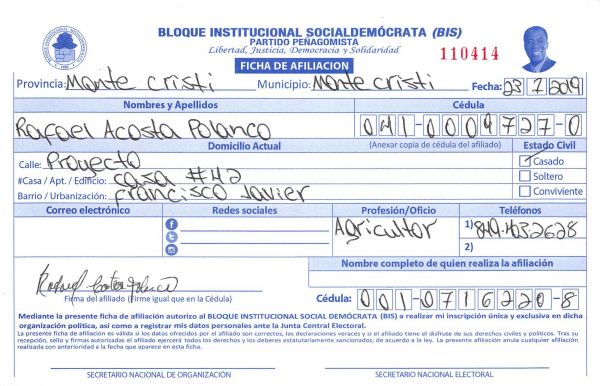 BLOQUE INSTITUCIONAL SOCIALDEMÓCRATA (BIS)
PARTIDO PEÑAGOMISTA
Libertad, Justicia, Democracia y Solidaridad
110414
FICHA DE AFILIACION
Provincia: Monte Cristi Municipio: Monte Cristi Fecha: 23 7 2019
Nombres y Apellidos Cédula
Rafael Acosta Polanco 041-0009727-0
Domicilio Actual (Anexar copia de cédula del afiliado) Estado Civil
Calle: Proyecto Casado
#Casa / Apt. / Edificio: casa #42 Soltero
Barrio / Urbanización: Francisco Javier Conviviente
Correo electrónico Redes sociales Profesión/Oficio Teléfonos
Agricultor 1) 849-4032628
2)
Nombre completo de quien realiza la afiliación
Firma del afiliado (Firme igual que en la Cédula)
Cédula: 001-0716220-8
Mediante la presente ficha de afiliación autorizo al BLOQUE INSTITUCIONAL SOCIAL DEMÓCRATA (BIS) a realizar mi inscripción única y exclusiva en dicha
organización política, así como a registrar mis datos personales ante la Junta Central Electoral.
La presente ficha de afiliación es válida si los datos ofrecidos por el afiliado son correctos, las declaraciones veraces y si el afiliado tiene el disfrute de sus derechos civiles y políticos. Tras su
recepción, sello y firmas autorizadas el afiliado ejercerá todos los derechos y los deberes estatutariamente sancionados, de acuerdo a la ley. La presente afiliación anula cualquier afiliación
realizada con anterioridad a la fecha que aparece en esta ficha.
SECRETARIO NACIONAL DE ORGANIZACIÓN SECRETARIO NACIONAL ELECTORAL